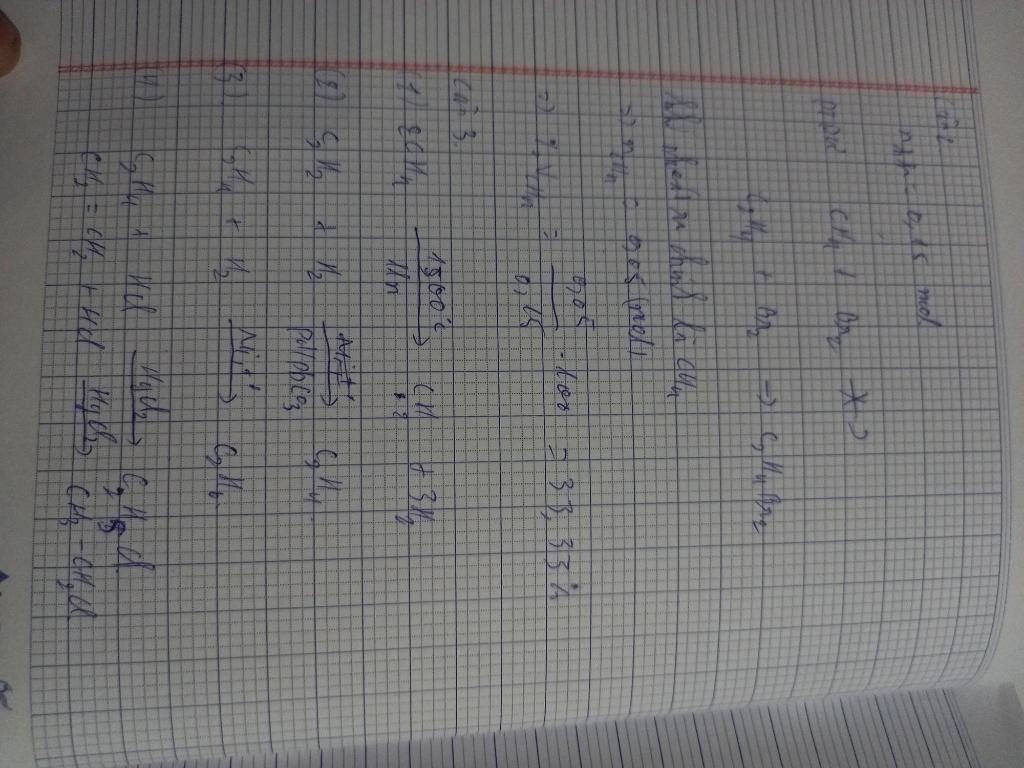 Câu 2.
nhh = 0,15 mol
CH4 + Br2 ->
C2H4 + Br2 -> C2H4Br2
khí thoát ra khỏi bình là CH4
-> nCH4 = 0,05 (mol)
=> %VCH4 = 0,05 / 0,15 . 100 = 33,33%
Câu 3.
(1) 2CH4 1500°C -> lln C2H2 + 3H2
(2) C2H2 + H2 -> Pd/PbCO3 C2H4
(3) C2H4 + H2 Ni, t° -> C2H6
(4) C2H4 + HCl HgCl2 -> C2H5Cl
CH2 = CH2 + HCl HgCl2 -> CH3 - CH2Cl